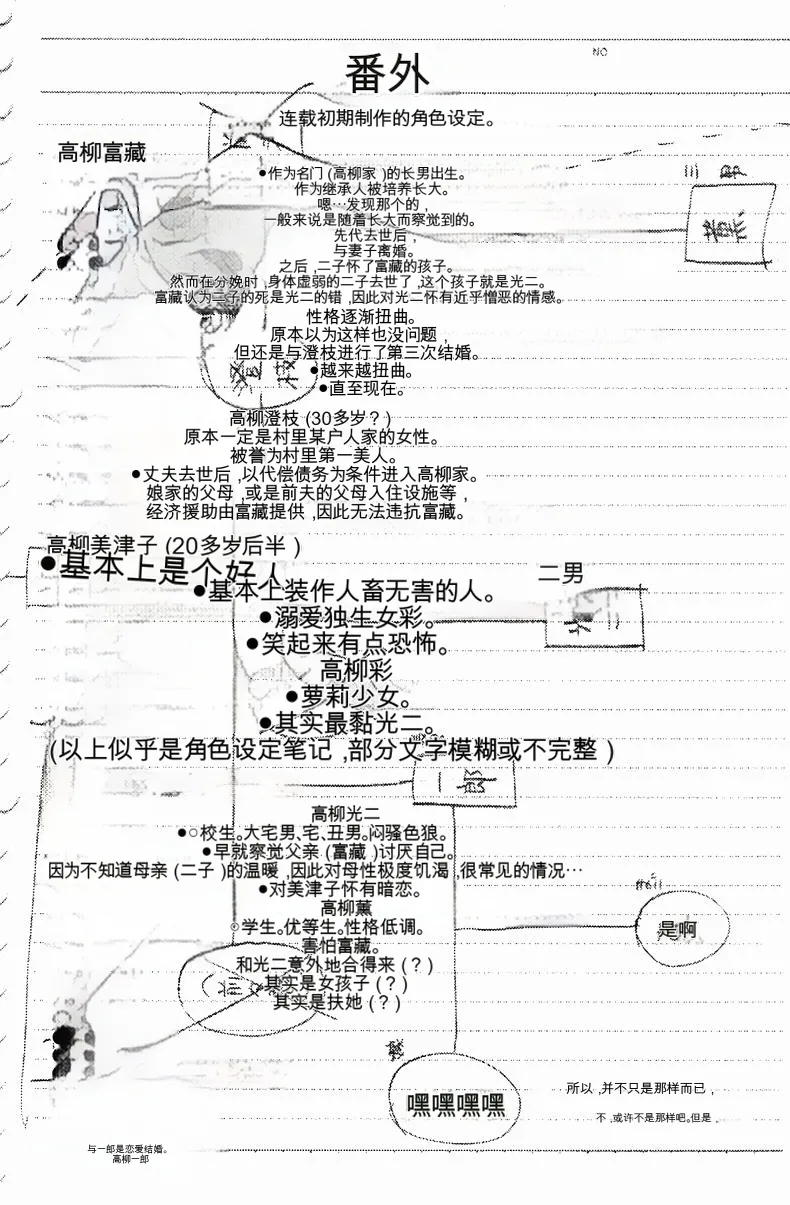 NO
番外
连载初期制作的角色设定。
高柳富藏
●作为名门(高柳家)的长男出生。
作为继承人被培养长大。
嗯…发现那个的,
一般来说是随着长大而察觉到的。
先代去世后,
与妻子离婚。
之后,二子怀了富藏的孩子。
然而在分娩时,身体虚弱的二子去世了,这个孩子就是光二。
富藏认为二子的死是光二的错,因此对光二怀有近乎憎恶的情感。
性格逐渐扭曲。
原本以为这样也没问题,
但还是与澄枝进行了第三次结婚。
●越来越扭曲。
●直至现在。
三男
薫
澄枝
高柳澄枝(30多岁?)
原本一定是村里某户人家的女性。
被誉为村里第一美人。
●丈夫去世后,以代偿债务为条件进入高柳家。
娘家的父母,或是前夫的父母入住设施等,
经济援助由富藏提供,因此无法违抗富藏。
高柳美津子(20多岁后半)
●基本上是个好人
●基本上装作人畜无害的人。
二男
光二
●溺爱独生女彩。
●笑起来有点恐怖。
高柳彩
●萝莉少女。
●其实最黏光二。
(以上似乎是角色设定笔记,部分文字模糊或不完整)
一郎
高柳光二
●○校生。大宅男、宅、丑男。闷骚色狼。
●早就察觉父亲(富藏)讨厌自己。
因为不知道母亲(二子)的温暖,因此对母性极度饥渴,很常见的情况…
●对美津子怀有暗恋。
高柳薫
◎学生。优等生。性格低调。
害怕富藏。
和光二意外地合得来(?)
其实是女孩子(?)
其实是扶她(?)
是啊
嘿嘿嘿嘿
所以,并不只是那样而已,
不,或许不是那样吧。但是,
与一郎是恋爱结婚。
高柳一郎